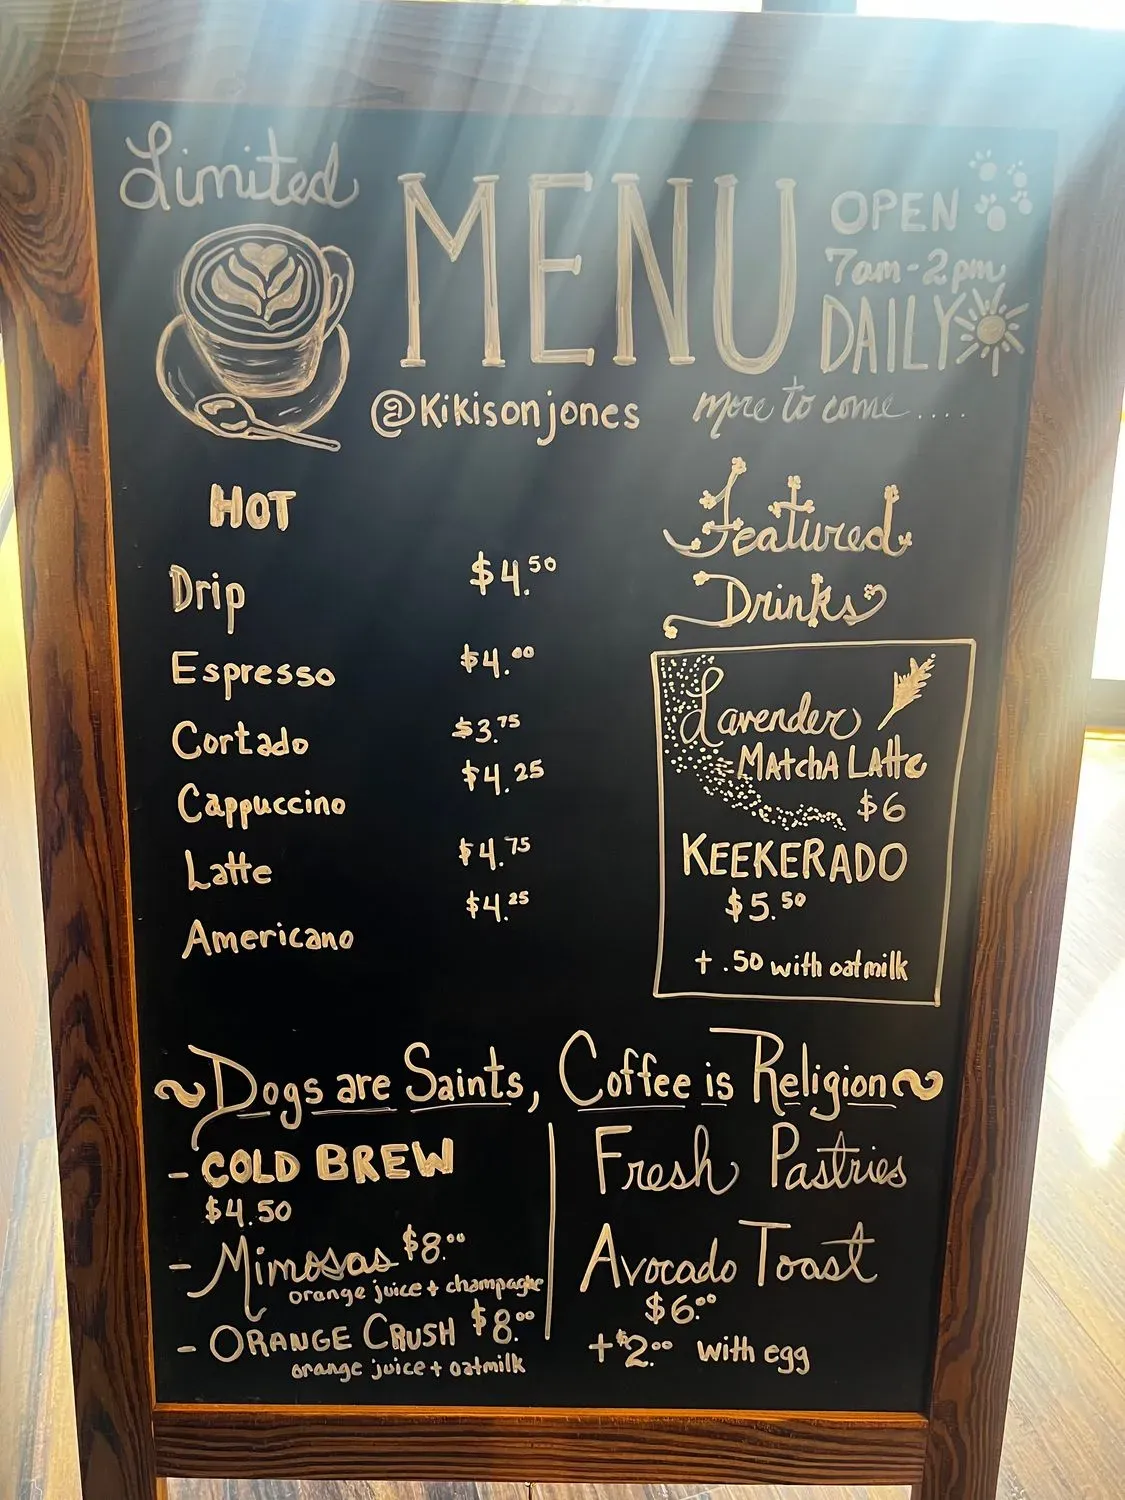 Limited
MENU
OPEN
7am-2pm
DAILY
@Kikisonjones
more to come....
HOT
Drip $4.50
Espresso $4.00
Cortado $3.75
Cappuccino $4.25
Latte $4.75
Americano $4.25
Featured
Drinks
Lavender
MAtchA LAtte
$6
KEEKERADO
$5.50
+ .50 with oatmilk
~Dogs are Saints, Coffee is Religion~
- COLD BREW
$4.50
- Mimosas $8.00
orange juice + champagne
- ORANGE CRUSH $8.00
orange juice + oatmilk
Fresh Pastries
Avocado Toast
$6.00
+$2.00 with egg